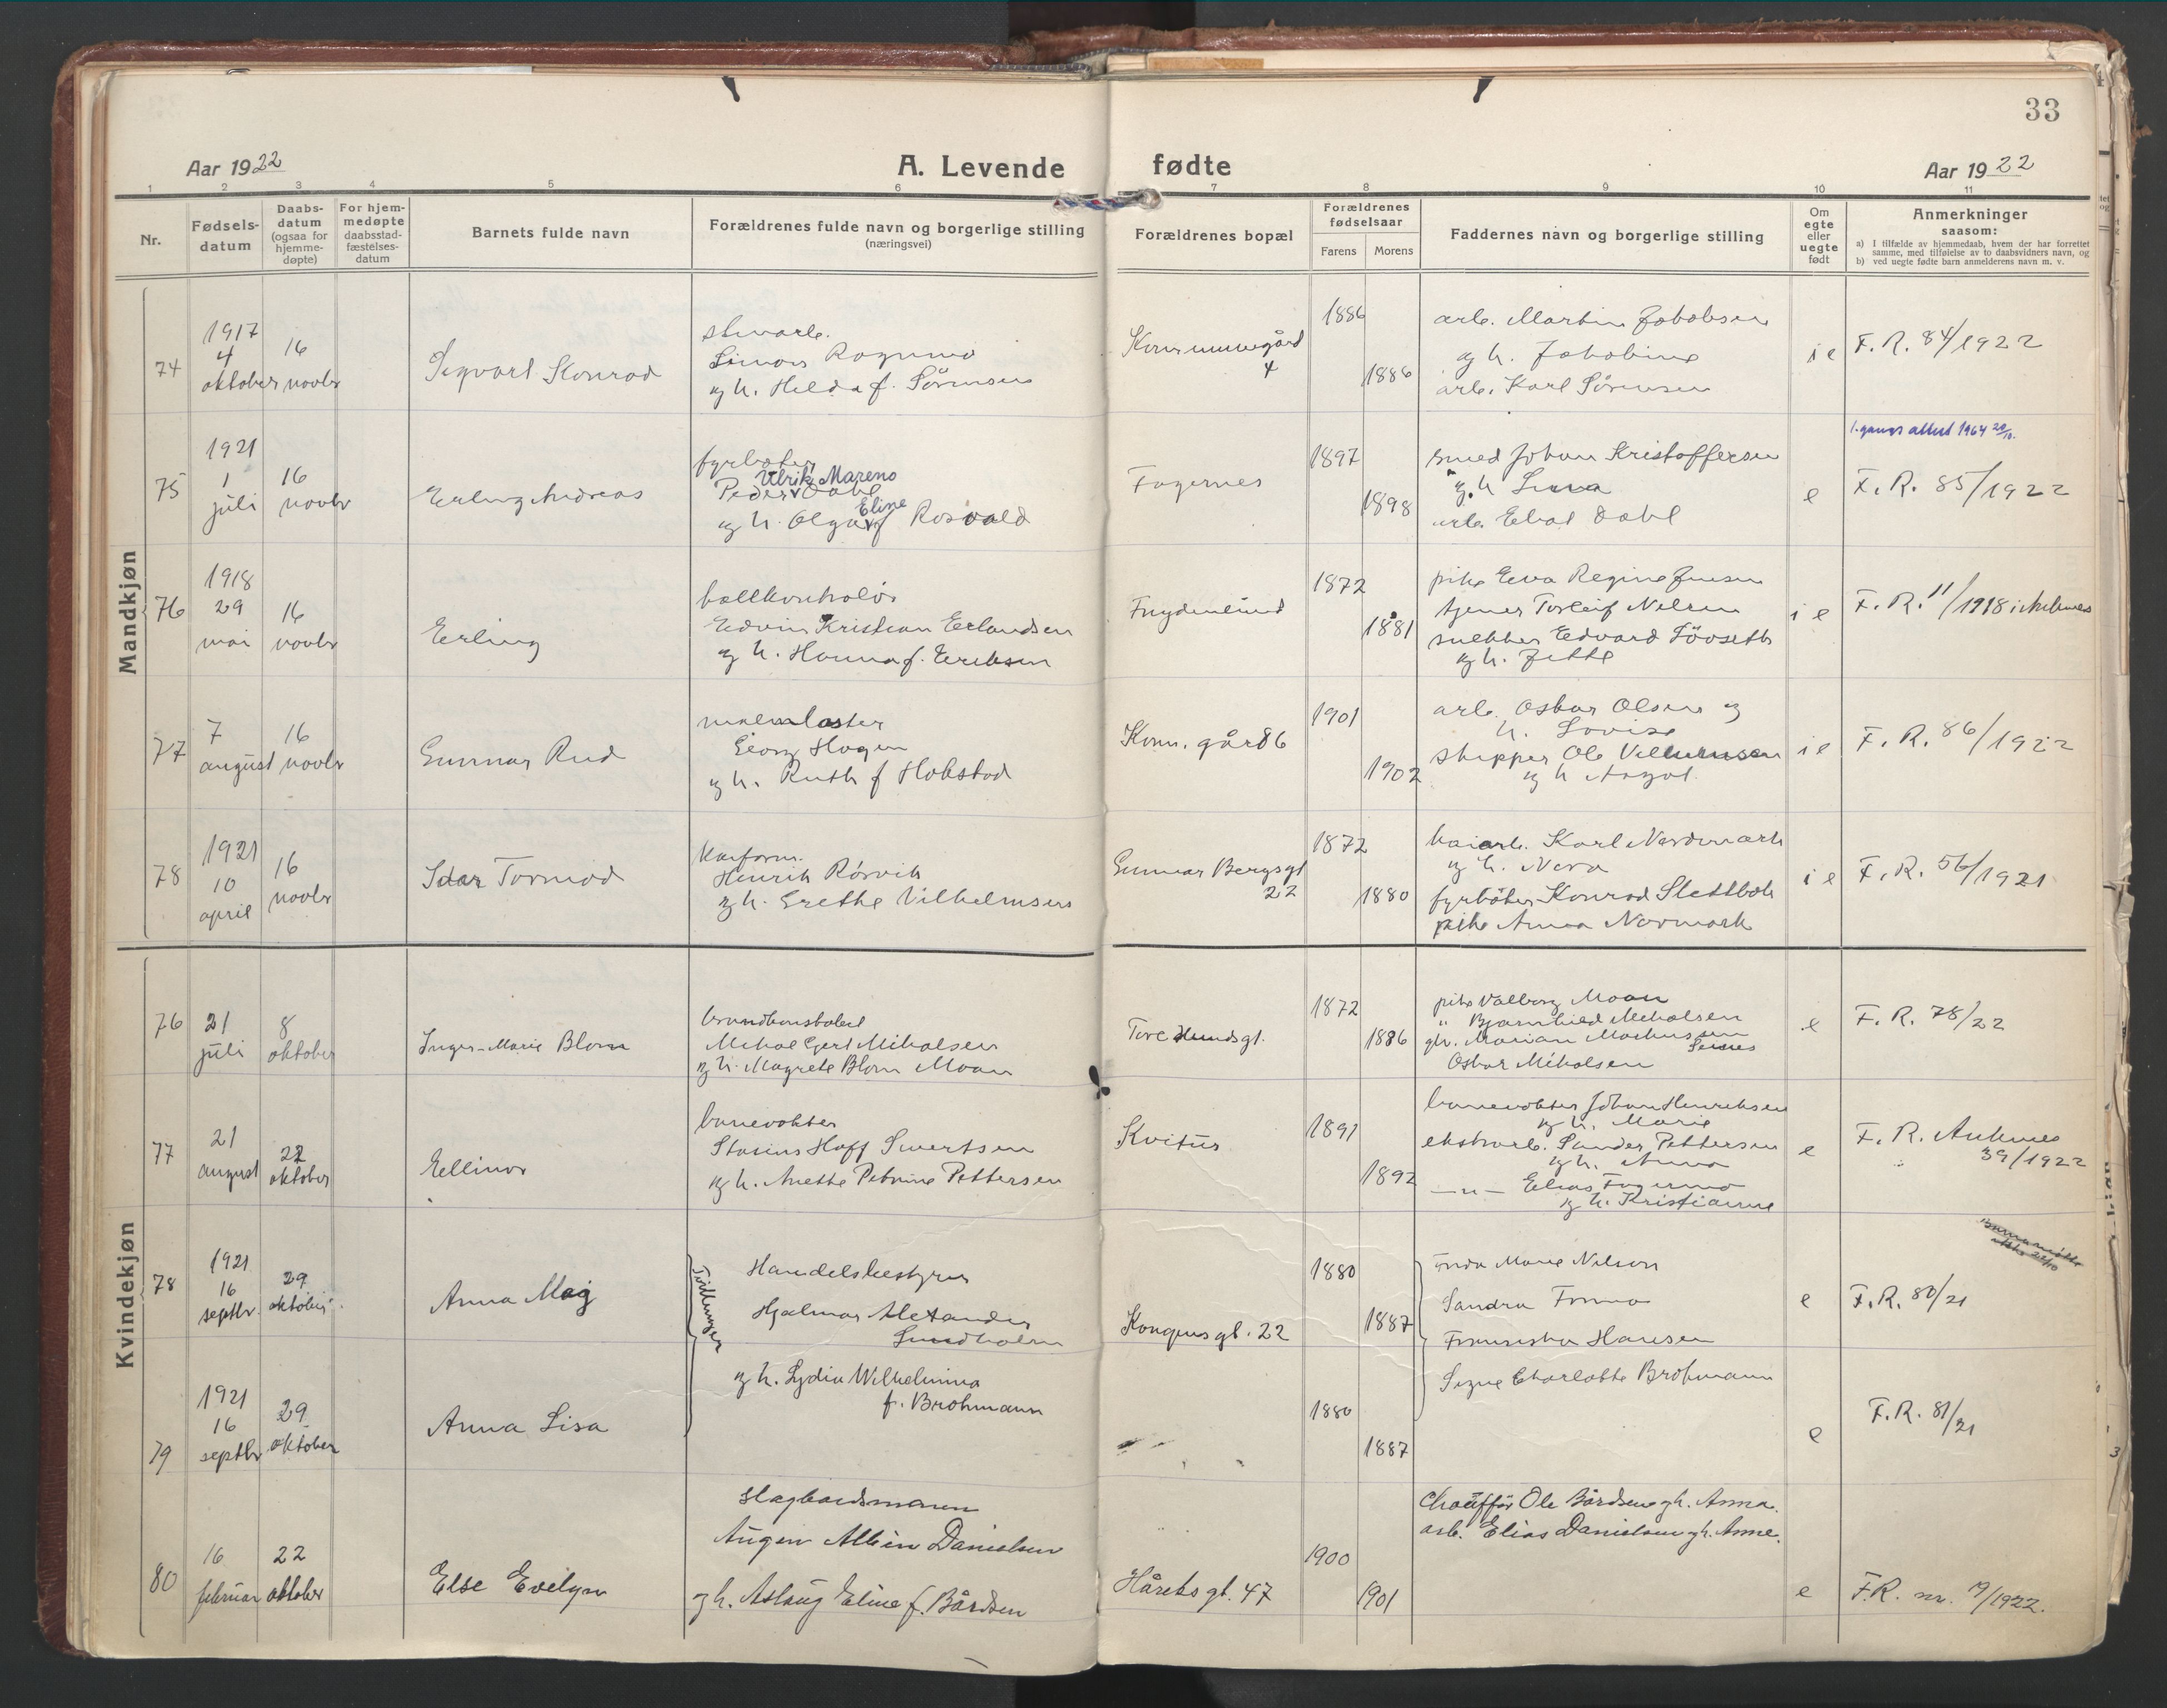 33
Aar 1922
A. Levende fødte
Aar 1922
1 2 3 4 5 6 7 8 9 10 11
Nr.
Fødsels-
datum
Daabs-
datum
(ogsaa for
hjemme-
døpte)
For hjem-
medøpte
daabsstad-
fæstelses-
datum
Barnets fulde navn
Forældrenes fulde navn og borgerlige stilling
(næringsvei)
Forældrenes bopæl
Forældrenes
fødselsaar
Farens Morens
Faddernes navn og borgerlige stilling
Om
egte
eller
uegte
født
Anmerkninger
saasom:
a) I tilfælde av hjemmedaab, hvem der har forrettet
samme, med tilføielse av to daabsvidners navn, og
b) ved uegte fødte barn anmelderens navn m. v.
Mandkjøn
74
1917
4
oktober
16
novbr
Sigvart Konrad
Simon
og h. Hilda f. Sörensen
Kommunegård
4
1886
1886
arb. Martin Jakobsen
og h. Jakobine
arb. Karl Sörensen
i e
F. R. 84/1922
75
1921
1
juli
16
novbr
Erling Andreas
fyrböter
Ulrik Mareno
Peder Dahl
Eline
og h. Olga f Rosvald
Fagernes
1897
1898
smed Johan Kristoffersen
og h
arb. Dahl
e
1. gangs attest 1964 20/10.
F. R. 85/1922
76
1918
29
mai
16
novbr
Erling
Edvin Kristian Erlandsen
og h. Hanna f. Eriksen
Frydenlund
1872
1881
pike Eva Regine Jensen
Torleif Nilsen
snekker Edvard
og h.
i e
F. R. 11/1918 i Ankenes
77
7
august
16
novbr
Gunnar Rud
malmlaster
Georg Hagen
og h. Ruth f Hokstad
Kom. gård 6
1901
1902
arb. Oskar Olsen og
h. Lovise
skipper Ole Vilhelmsen
og h Aagot
i e
F. R. 86/1922
78
1921
10
april
16
novbr
Idar Tormod
Henrik Rörvik
og h. Grethe Vilhelmsen
Gunnar Bergsgt
22
1872
1880
kaiarb. Karl Nordmark
og h. Nera
fyrböter Konrad
pike Anna Normark
i e
F. R. 56/1921
Kvindekjøn
76
21
juli
8
oktober
Inger-Marie Blom
brandkonstabel
Mikal Gert Mikalsen
og h. Magrete Blom Moan
Tore Hundsgt.
1872
1886
pike Valborg Moan
" Bjarnhild Mikalsen
Oskar Mikalsen
e
F. R. 78/22
77
21
august
22
oktober
Ellinor
banevokter
Stasius Hoff Sivertsen
og h. Anette Petrine Pettersen
Kvitur
1891
1892
banevokter Johan Henriksen
og h. Marie
ekstraarb. Sander Pettersen
og h. Anna
—"— Elias
og h. Kristianne
e
F. R. Ankenes
39/1922
78
1921
16
septbr.
29
oktober
Anna Maj
Tvillinger
Handelsbestyrer
Hjalmar Alexander
Lundholm
og h. Lydia Wilhelmina
f. Brohmann
Kongensgt. 22
1880
1887
Frida Marie Nilson
Sandra
Fransiska Hansen
Signe Charlotte Brohmann
e
F. R. 80/21
79
1921
16
septbr
29
oktober
Anna Lisa
1880
1887
e
F. R. 81/21
80
16
februar
22
oktober
Else Evelyn
Slagbordsmann
Augin Albin Danielsen
og h. Aslaug Eline f. Bårdsen
Håreks gt. 47
1900
1901
Chauffør Ole Bårdsen og h. Anna.
arb. Elias Danielsen og h. Anne.
e
F. R. nr. 19/1922.